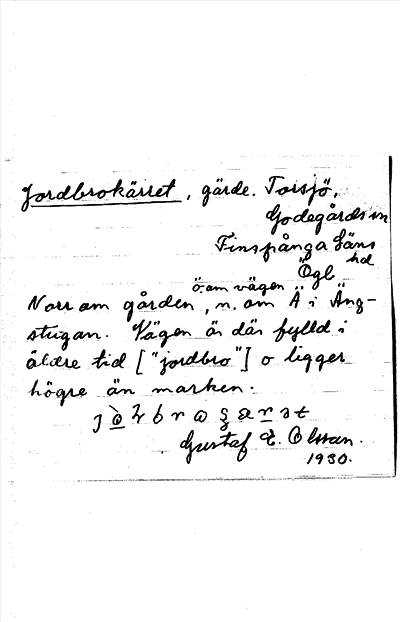 Jordbrokärret, gärde. Torsjö,
Godegårds sn
Finspånga läns
hd
Ögl.
ö. om vägen
Norr om gården, n. om Ä i Äng-
stugan. Vägen är där fylld i
äldre tid ["jordbro"] o ligger
högre än marken.
Gustaf E. Olsson.
1930.